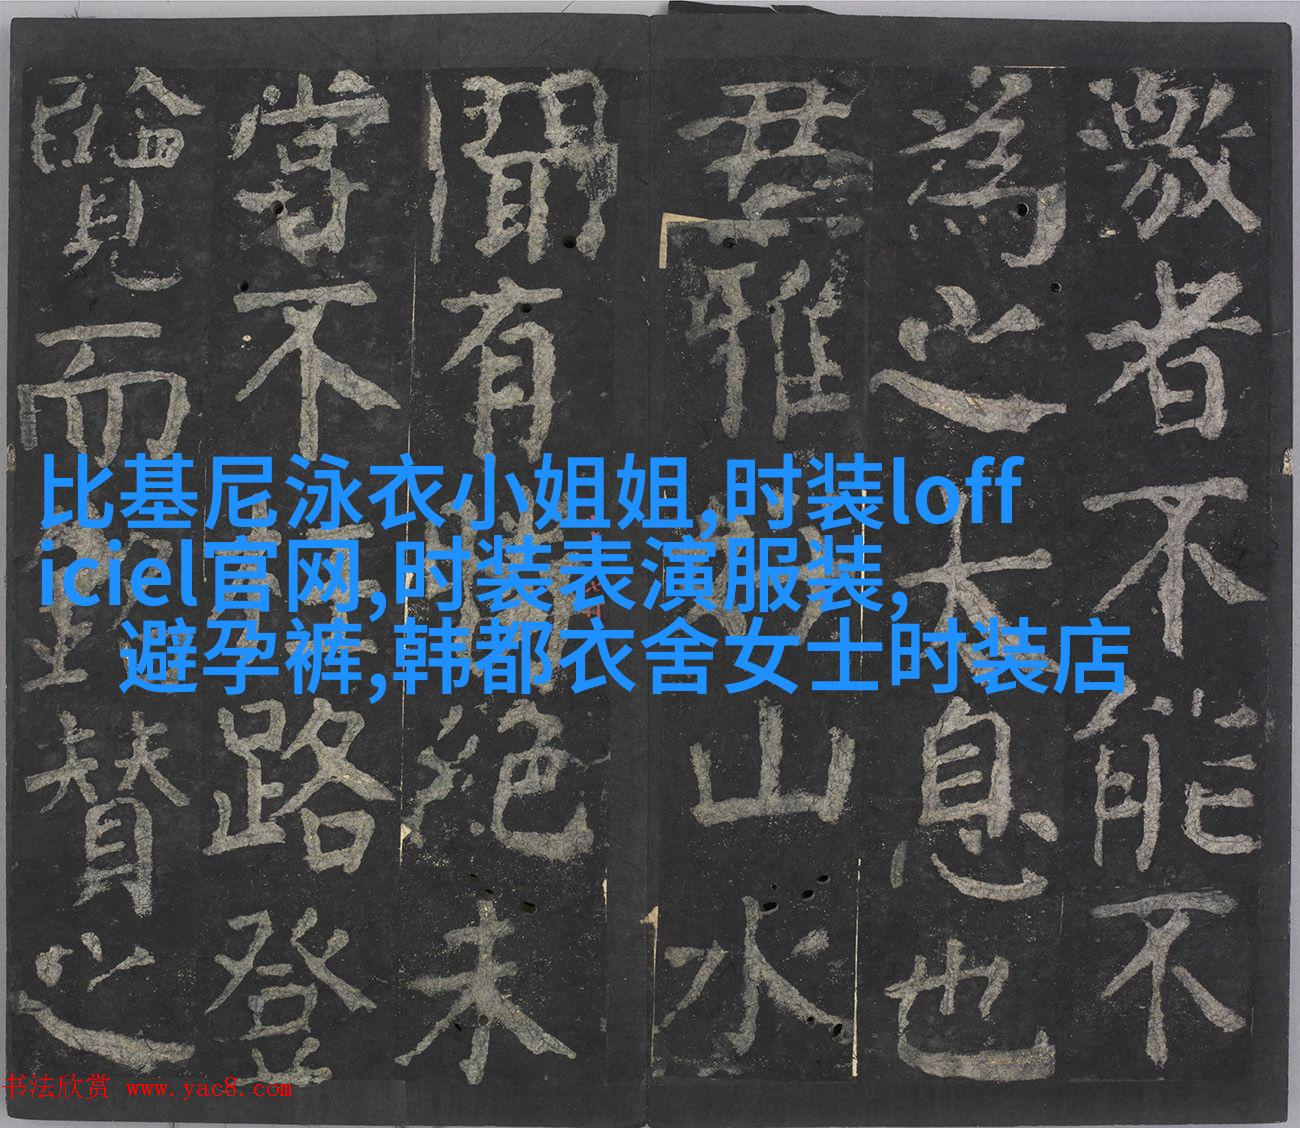 激者不能不
為之大息也
君雅山水
聞有絕未
嘗不路登
覽而賛之
比基尼泳衣小姐姐,时装loff
iciel官网,时装表演服装,
避孕裤,韩都衣舍女士时装店
书法欣赏 www.yac8.com